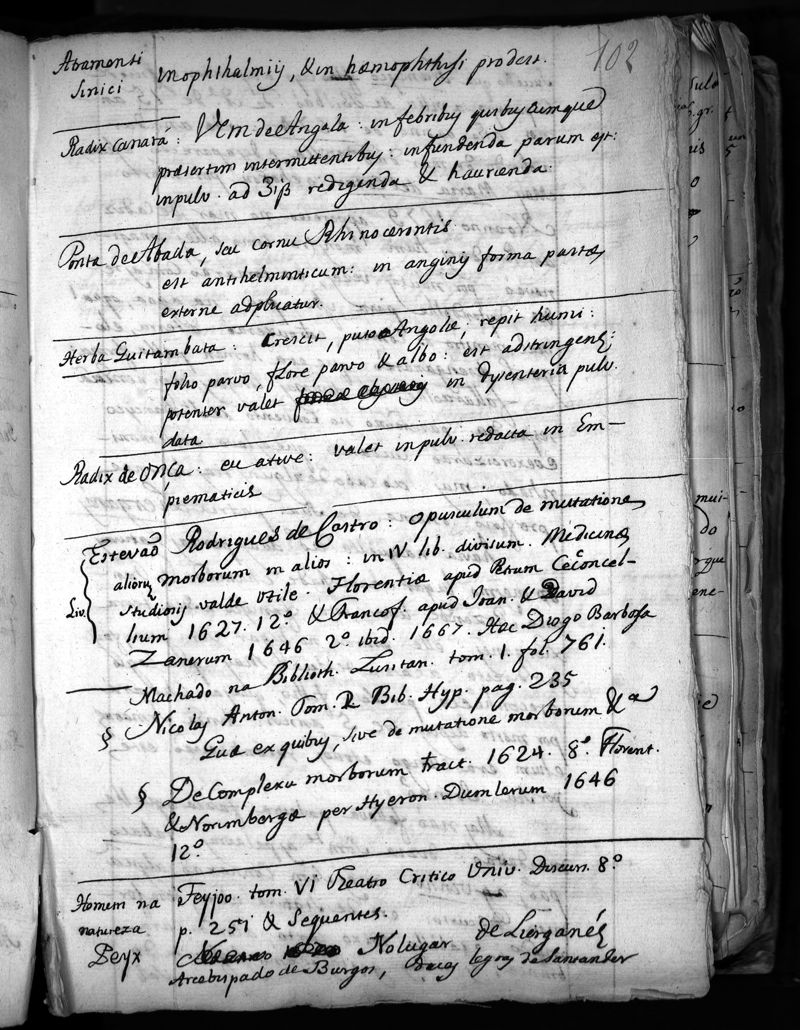 102
Atramenti
Sinici
in ophthalmiis, & in hæmophthysi prodest.
Radix Canará: Vem de Angola: in febribus quibuscumque
præsertim intermittentibus: infundenda parum est:
in pulv. ad ʒiß redigenda & haurienda.
Ponta de Abada, seu cornu Rhinocerontis
est antihelminticum: in anginis forma pastæ
externe adplicatur.
Herba Guitambata: Crescit, puto Angolæ, repit humi:
folio parvo, flore parvo & albo: est adstringens:
potenter valet in dysenteria pulv.
data
Radix de Onca: valet in pulv. redacta in Em-
piematicis
Liv.
Estevaõ Rodrigues de Castro: Opusculum de mutatione
aliorum morborum in alios: in IV lib. divisum. Medicinæ
studiosis valde utile. Florentiæ apud Petrum Ceconcel-
lium 1627. 12.º & Francof. apud Joan. & David
Zanerum 1646 2.º ibid. 1667. Hæc Diogo Barbosa
Machado na Biblioth. Lusitan. tom. 1. fol. 761.
§ Nicolas Anton. Tom. 2 Bib. Hyp. pag. 235
Quæ ex quibus, sive de mutatione morborum &a
§ De Complexu morborum tract. 1624. 8.º Florent.
& Norimbergæ per Hyeron. Dumlerum 1646
12.º
Homem na
natureza
Peyx
Feyjoo. tom. VI Theatro Critico Univ. Discurs. 8.º
p. 251 & Sequentes.
No lugar de Lierganés
Arcebispado de Burgos, legoas de Santander